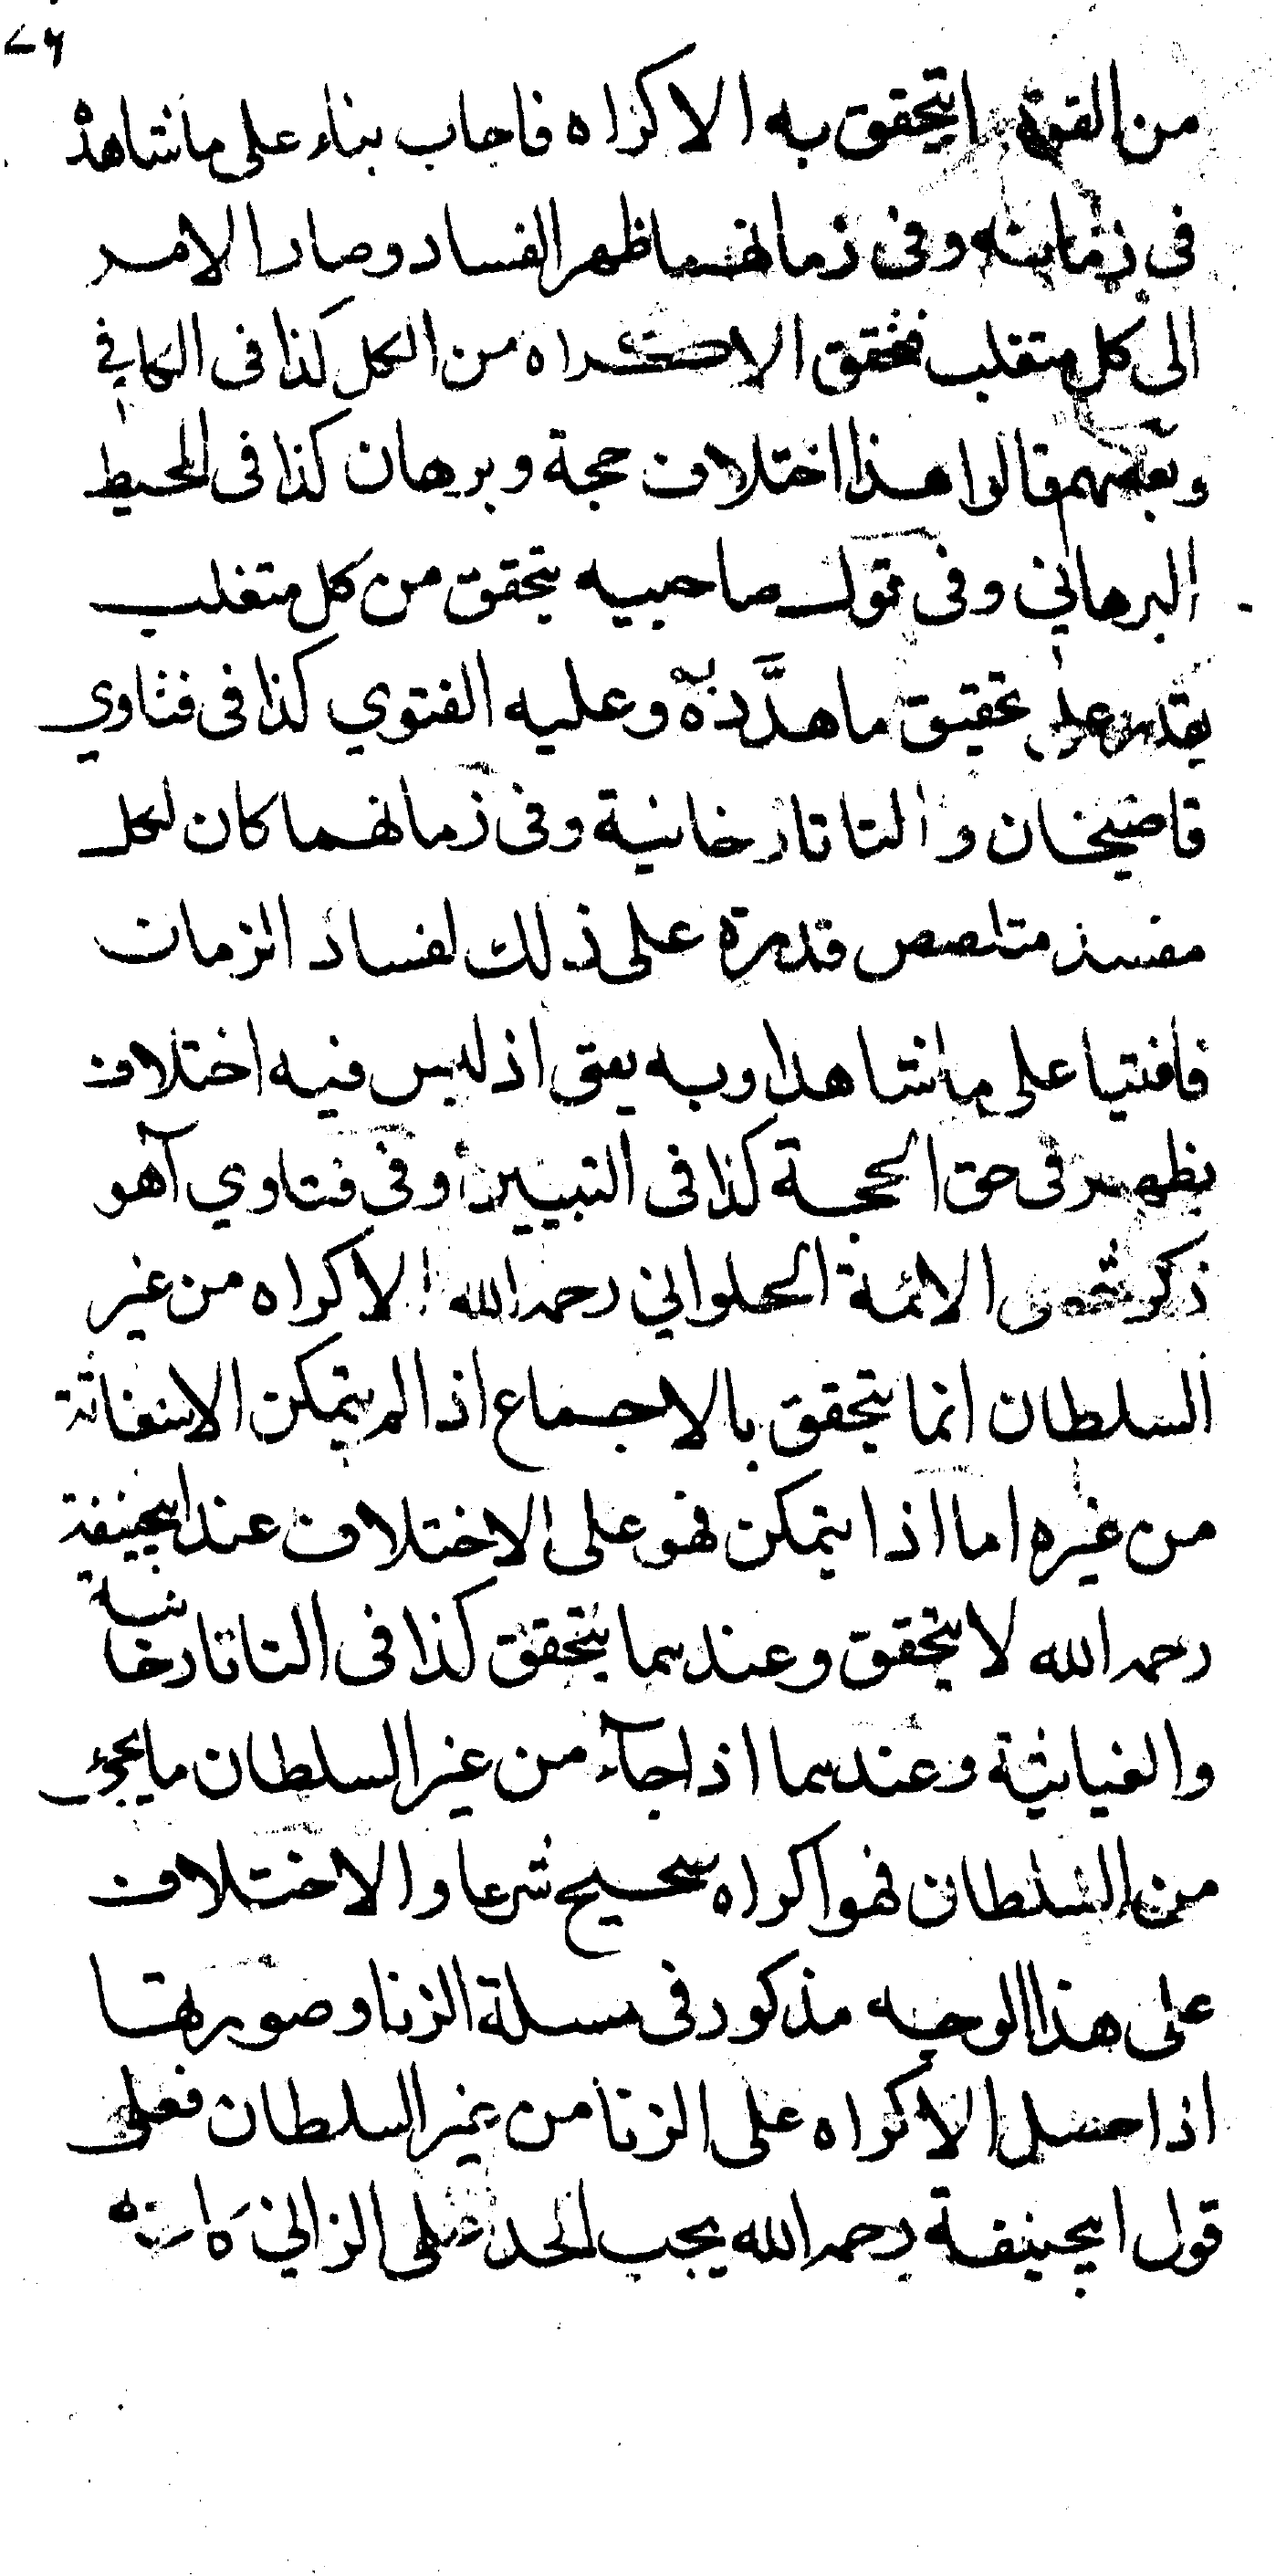 من القوة ما يتحقق به الاكراه فاجاب بناء على ما شاهد
فى زمانه وفى زمانهما ظهر الفساد وصار الامر
الى كل متغلب فتحقق الاكراه من الكل كذا فى الكافي
وبعضهم قالوا هذا اختلاف حجة وبرهان كذا فى المحيط
البرهاني وفى قول صاحبيه يتحقق من كل متغلب
يقدر على تحقيق ما هدّد به وعليه الفتوي كذا فى فتاوي
قاضيخان والتاتارخانية وفى زمانهما كان لكل
مفسد متلصص قدرة على ذلك لفساد الزمان
فافتيا على ما شاهدا وبه يفتى اذ ليس فيه اختلاف
يظهر فى حق الحجة كذا فى التبيين وفى فتاوي آهو
ذكر شمس الائمة الحلواني رحمه الله الاكراه من غير
السلطان انما يتحقق بالاجماع اذا لم يتمكن الاستغاثة
من غيره اما اذا يتمكن فهو على الاختلاف عند ابيحنيفة
رحمه الله لا يتحقق وعندهما يتحقق كذا فى التاتارخانية
والغياثية وعندهما اذا جآء من غير السلطان ما يجئ
من السلطان فهو اكراه صحيح شرعا والاختلاف
على هذا الوجه مذكور فى مسلة الزنا وصورتها
اذا حصل الاكراه على الزنا من غير السلطان فعلى
قول ابيحنيفة رحمه الله يجب الحد على الزاني